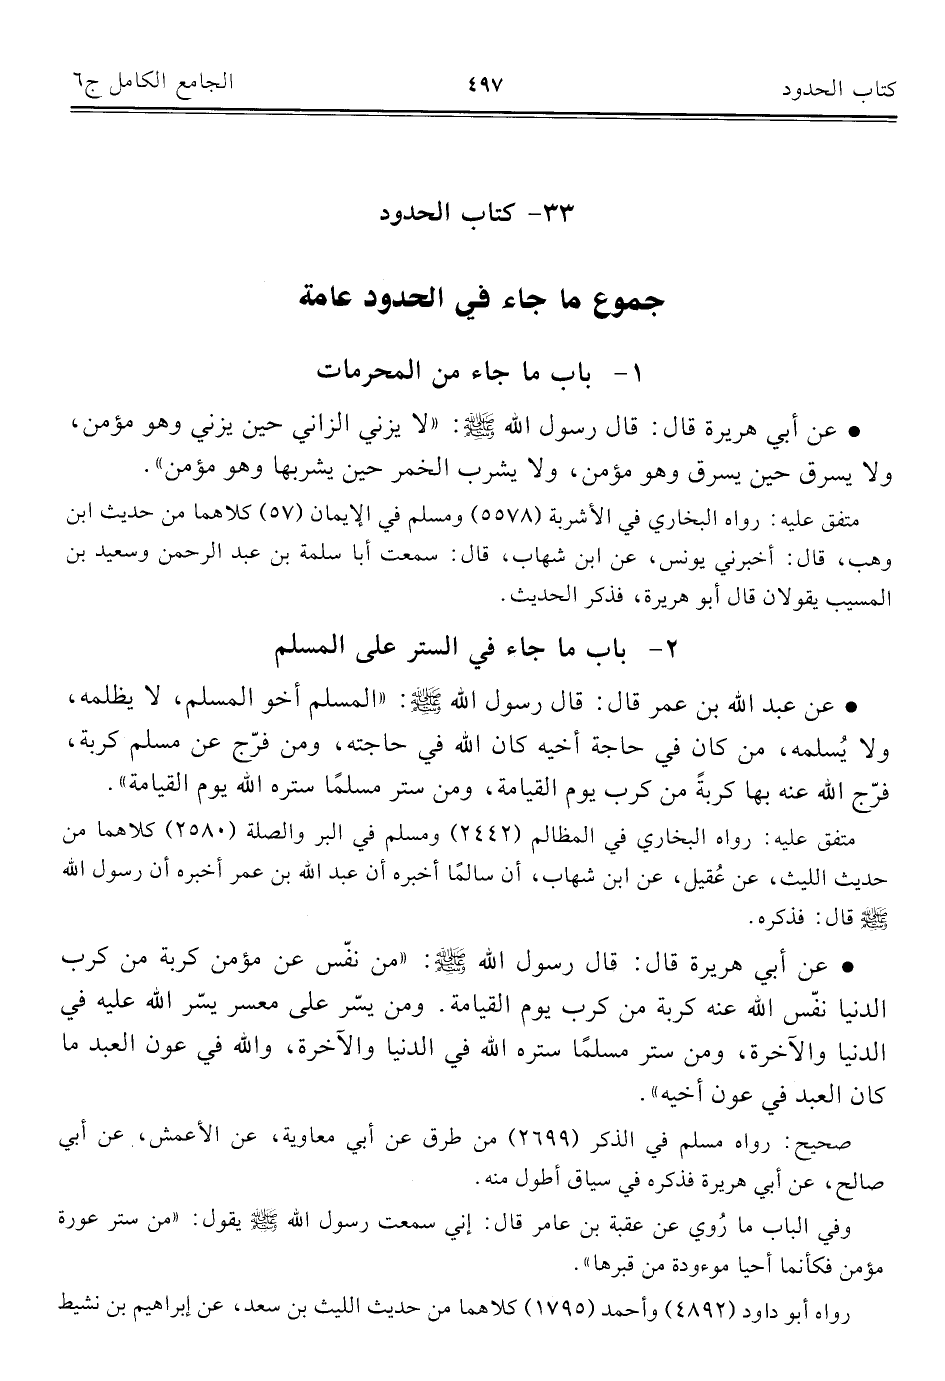 كتاب الحدود ٤٩٧ الجامع الكامل ج٦
٣٣- كتاب الحدود
جموع ما جاء في الحدود عامة
١- باب ما جاء من المحرمات
• عن أبي هريرة قال: قال رسول الله ﷺ: «لا يزني الزاني حين يزني وهو مؤمن،
ولا يسرق حين يسرق وهو مؤمن، ولا يشرب الخمر حين يشربها وهو مؤمن».
متفق عليه: رواه البخاري في الأشربة (٥٥٧٨) ومسلم في الإيمان (٥٧) كلاهما من حديث ابن
وهب، قال: أخبرني يونس، عن ابن شهاب، قال: سمعت أبا سلمة بن عبد الرحمن وسعيد بن
المسيب يقولان قال أبو هريرة، فذكر الحديث.
٢- باب ما جاء في الستر على المسلم
• عن عبد الله بن عمر قال: قال رسول الله ﷺ: «المسلم أخو المسلم، لا يظلمه،
ولا يُسلمه، من كان في حاجة أخيه كان الله في حاجته، ومن فرّج عن مسلم كربة،
فرّج الله عنه بها كربةً من كرب يوم القيامة، ومن ستر مسلمًا ستره الله يوم القيامة».
متفق عليه: رواه البخاري في المظالم (٢٤٤٢) ومسلم في البر والصلة (٢٥٨٠) كلاهما من
حديث الليث، عن عُقيل، عن ابن شهاب، أن سالمًا أخبره أن عبد الله بن عمر أخبره أن رسول الله
ﷺ قال: فذكره.
• عن أبي هريرة قال: قال رسول الله ﷺ: «من نفّس عن مؤمن كربة من كرب
الدنيا نفّس الله عنه كربة من كرب يوم القيامة. ومن يسّر على معسر يسّر الله عليه في
الدنيا والآخرة، ومن ستر مسلمًا ستره الله في الدنيا والآخرة، والله في عون العبد ما
كان العبد في عون أخيه».
صحيح: رواه مسلم في الذكر (٢٦٩٩) من طرق عن أبي معاوية، عن الأعمش، عن أبي
صالح، عن أبي هريرة فذكره في سياق أطول منه.
وفي الباب ما رُوي عن عقبة بن عامر قال: إني سمعت رسول الله ﷺ يقول: «من ستر عورة
مؤمن فكأنما أحيا موءودة من قبرها».
رواه أبو داود (٤٨٩٢) وأحمد (١٧٩٥) كلاهما من حديث الليث بن سعد، عن إبراهيم بن نشيط